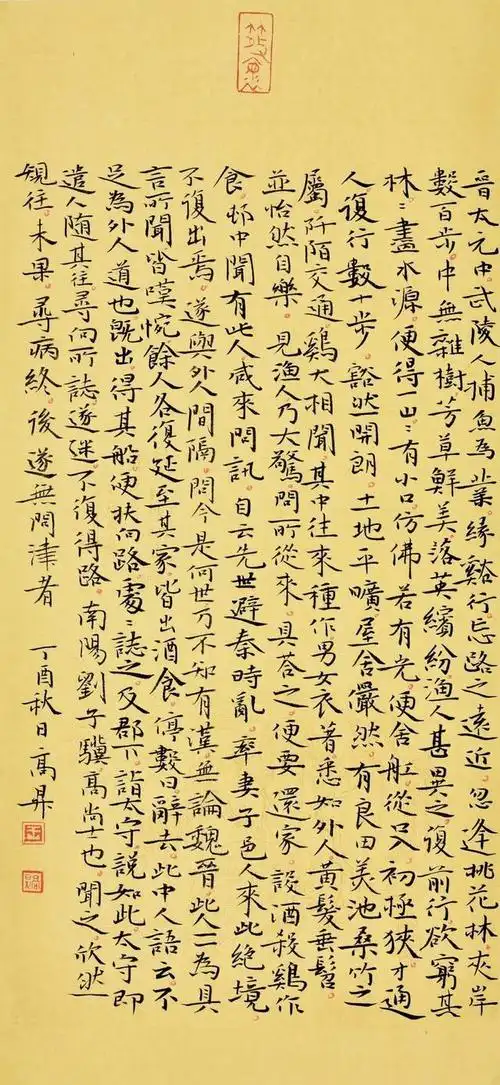 晉太元中武陵人捕魚為業緣谿行忘路之遠近忽逢桃花林夾岸
數百步中無雜樹芳草鮮美落英繽紛漁人甚異之復前行欲窮其
林〻盡水源便得一山〻有小口仿佛若有光便舍船從口入初極狹才通
人復行數十步豁然開朗土地平曠屋舍儼然有良田美池桑竹之
屬阡陌交通鷄犬相聞其中往來種作男女衣著悉如外人黃髮垂髫
並怡然自樂見漁人乃大驚問所從來具荅之便要還家設酒殺鷄作
食邨中聞有此人咸來問訊自云先世避秦時亂率妻子邑人來此絕境
不復出焉遂與外人間隔問今是何世乃不知有漢無論魏晉此人一一為具
言所聞皆嘆惋餘人各復延至其家皆出酒食停數日辭去此中人語云不
足為外人道也既出得其船便扶向路處〻誌之及郡下詣太守說如此太守即
遣人隨其往尋向所誌遂迷不復得路南陽劉子驥高尚士也聞之欣然
規往未果尋病終後遂無問津者 丁酉秋日高昇